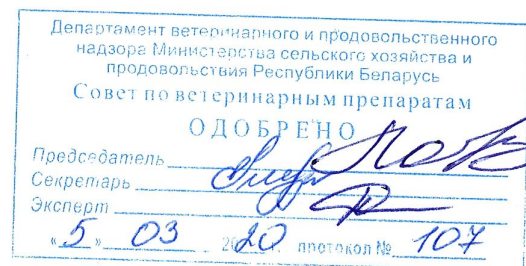 Департамент ветеринарного и продовольственного
надзора Министерства сельского хозяйства и
продовольствия Республики Беларусь
Совет по ветеринарным препаратам
ОДОБРЕНО
Председатель
Секретарь
Эксперт
«5» 03 2020 протокол № 107